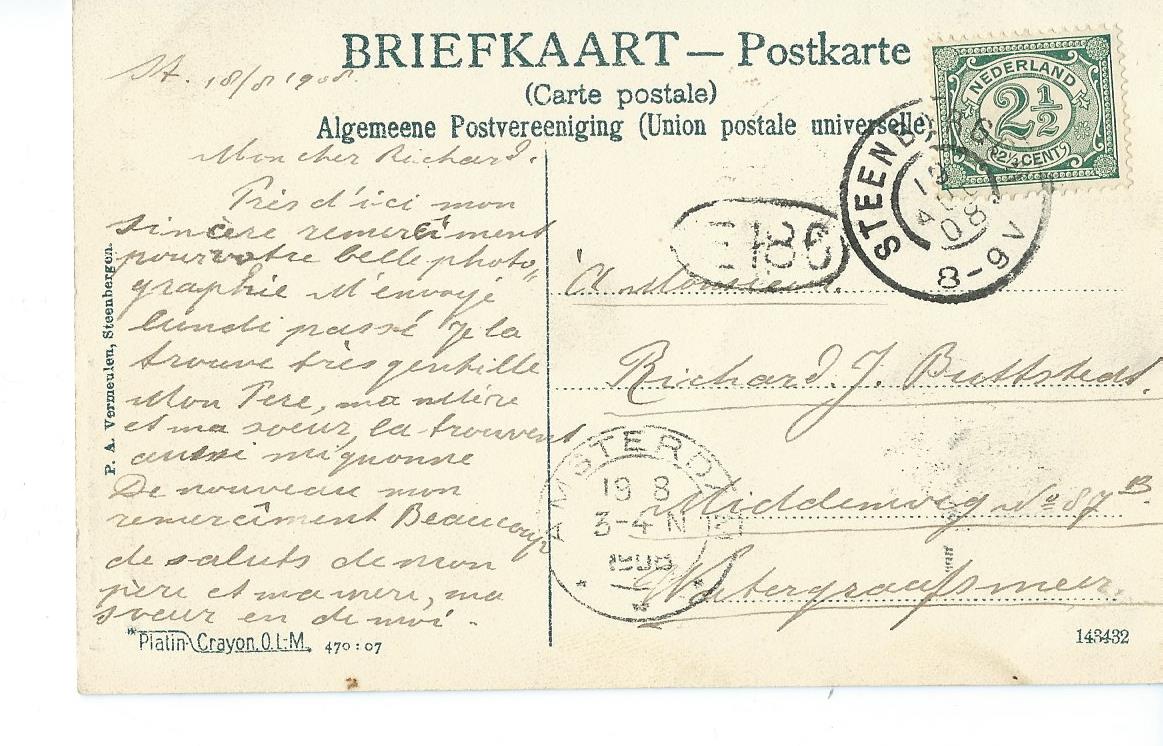 BRIEFKAART — Postkarte
(Carte postale)
Algemeene Postvereeniging (Union postale universelle)
St. 18/8 1908.
NEDERLAND
2½
2½ CENT
STEENBERGEN
8-9 V
Mon cher Richard.
Près d'ici mon
sincère remerciment
pour votre belle photo"
graphie M'envoyé
lundi passé je la
trouve très gentille
Mon Père, ma Mère
et ma soeur la trouvent
aussi mignonne
De nouveau mon
remercîment Beaucoup
de saluts de mon
père et ma mère, ma
soeur en de moi.
P. A. Vermeulen, Steenbergen.
À Monsieur.
Richard. J. Buttstedt.
Middenweg No 87 B.
Watergraafsmeer.
AMSTERDAM
19 8
3-4 N
1908
"Platin-Crayon. O.L.M. 470:07
143432